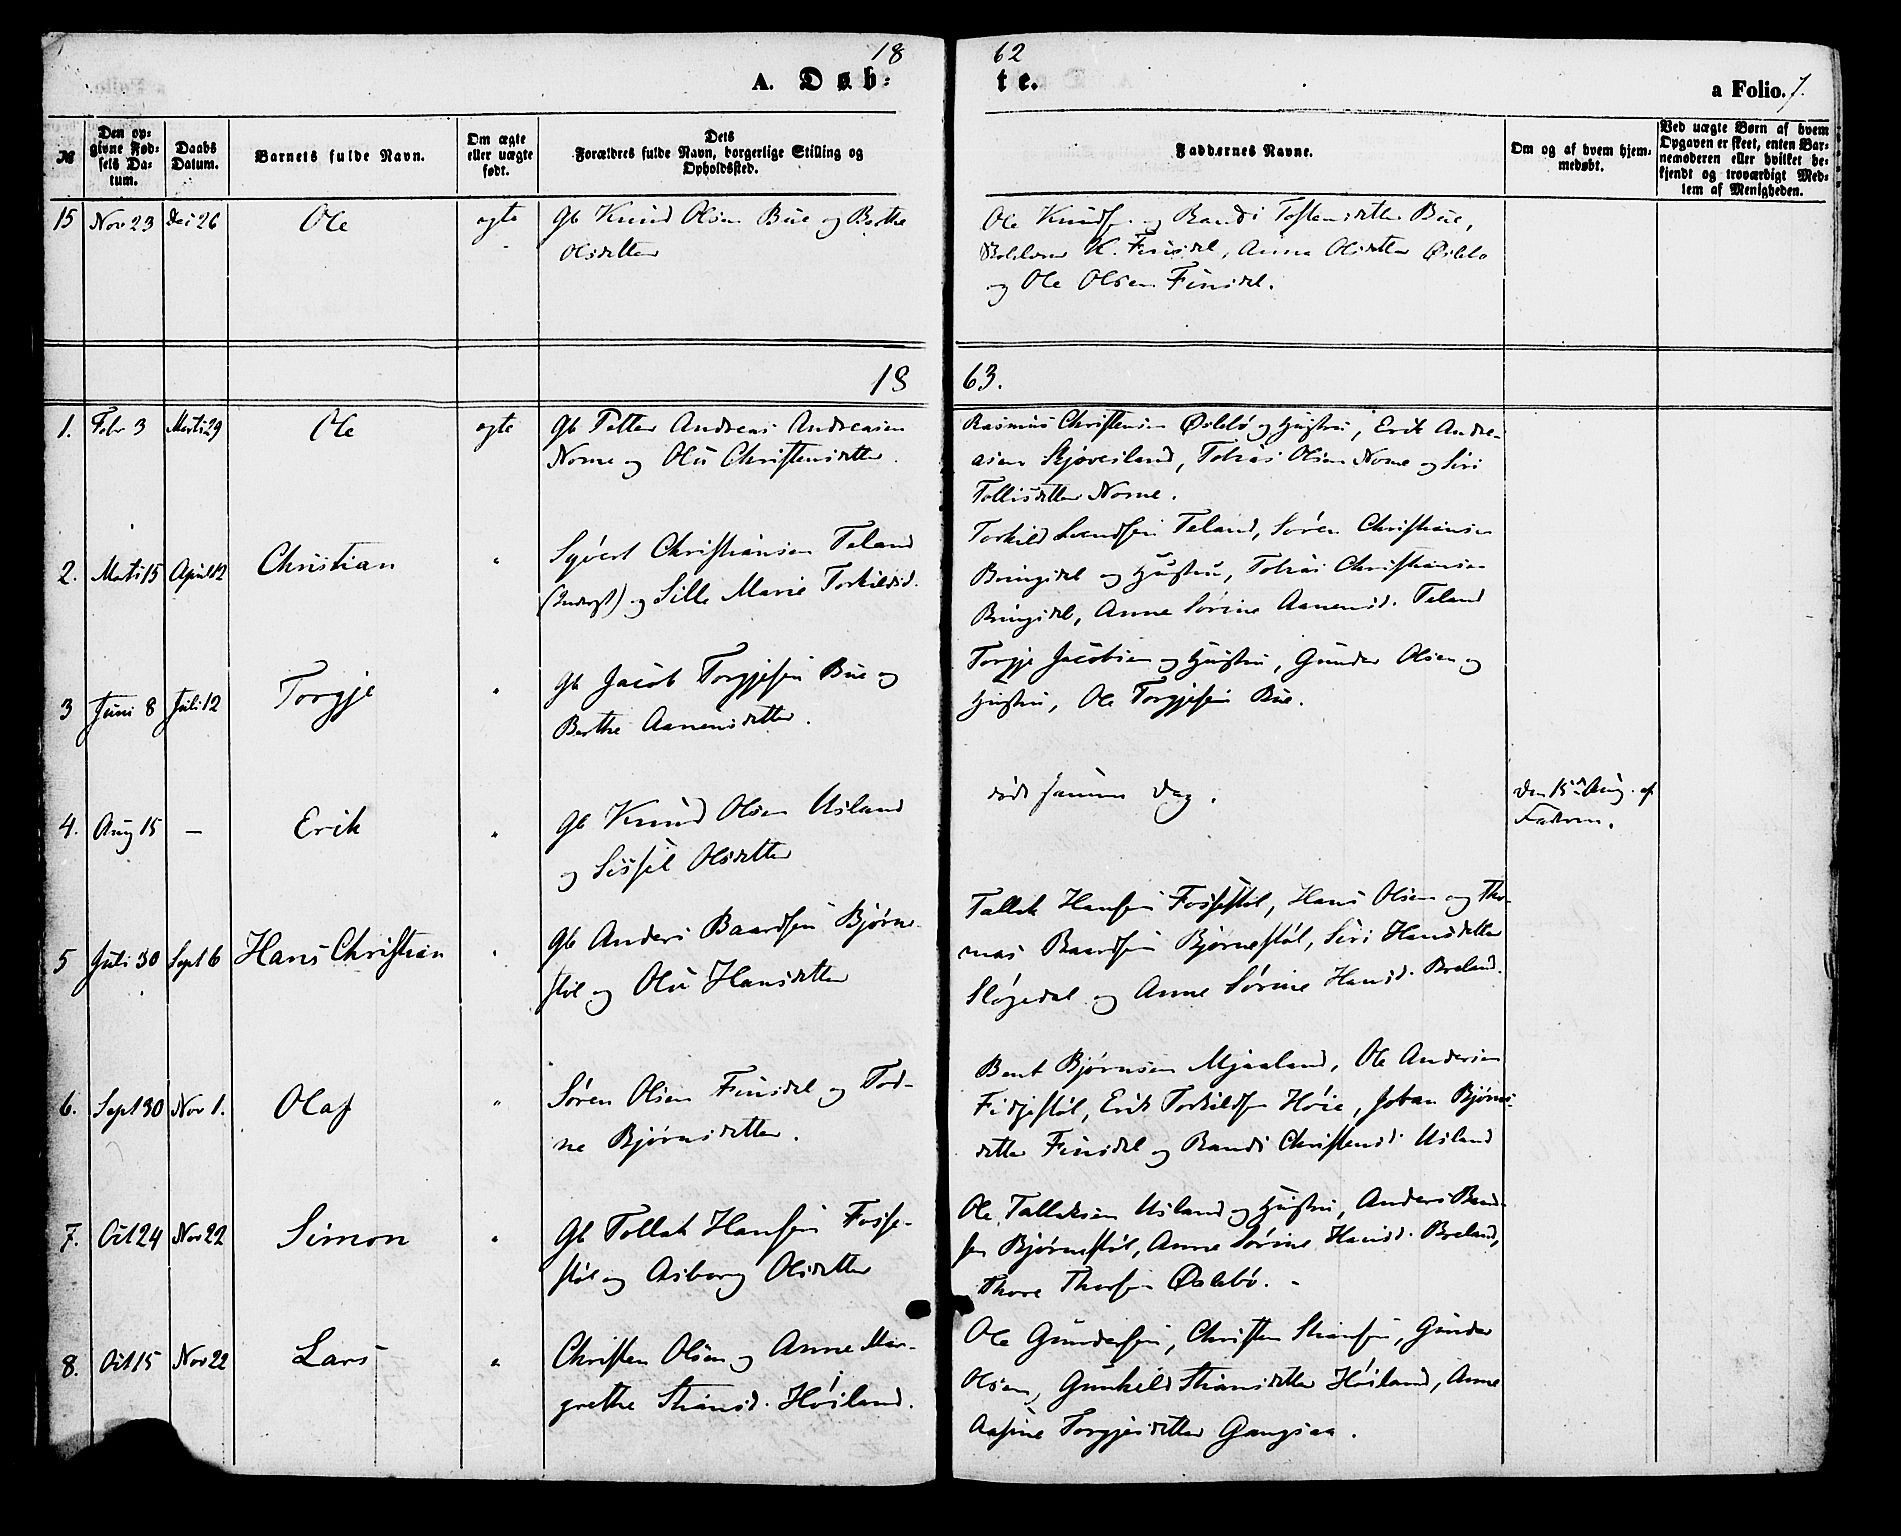 18 62
A. Døb: te. a Folio. 7.
№
Den op-
givne Fød-
sels Da-
tum.
Daabs
Datum.
Barnets fulde Navn.
Om ægte
eller uægte
født.
Dets
Forældres fulde Navn, borgerlige Stilling og
Opholdssted.
Faddernes Navne.
Om og af hvem hjem-
medøbt.
Ved uægte Børn af hvem
Opgaven er skeet, enten Bar-
nemoderen eller hvilket be-
kjendt og troværdigt Med-
lem af Menigheden.
15 Nov 23 Dec 26 Ole ægte Gb Knud Olsen Bue og Berthe
Olsdatter
Ole Knudsen og Randi Tostensdatter Bue,
K. Finsdal, Anna Olsdatter Øslebø
og Ole Olsen Finsdal.
18 63.
1. Febr 3 Marts 29 Ole ægte Gb Petter Andreas Andreasen
Nome og Olu Christensdatter.
Rasmus Christensen Øslebø og Hustru, Erik Andre-
asen Skjøvesland, Tobias Olsen Nome og Siri
Tollisdatter Nome.
2. Marts 15 April 12 Christian " Syvert Christiansen Teland
(Inderst) og Sille Marie Torkildsd.
Torkild Svendsen Teland, Søren Christiansen
Bringsdal og Hustru, Tobias Christiansen
Bringsdal, Anne Sørine Aanensd. Teland
3 Juni 8 Juli 12 Torgje " Gb Jacob Torgjesen Bue og
Berthe Aanensdatter.
Torgje Jacobsen og Hustru, Gunder Olsen og
Hustru, Ole Torgjesen Bue.
4. Aug 15 — Erik " Gb Knud Olsen Usland
og Sissel Olsdatter
død samme Dag.
den 15de Aug. af
Faderen.
5 Juli 30 Sept 6 Hans Christian " Gb Anders Baardsen Bjørne-
støl og Olu Hansdatter
Tallak Hansen Fossestøl, Hans Olsen og Tho-
mas Baardsen Bjørnestøl, Siri Hansdatter
Sløgedal og Anne Sørine Hansd. Breland.
6. Sept 30 Nov 1. Olaf " Søren Olsen Finsdal og Tor-
ne Bjørnsdatter.
Bent Bjørnsen Mjaaland, Ole Andersen
Fidjestøl, Erik Torkildsen Høie, Johan Bjørns-
datter Finsdal og Randi Christensd. Usland
7. Oct 24 Nov 22 Simon " Gb Tollak Hansen Fosse-
støl og Asborg Olsdatter
Ole Tallaksen Usland og Hustru, Anders Baard-
sen Bjørnestøl, Anne Sørine Hansd. Breland,
Thore Thorsen Øslebø.
8. Oct 15 Nov 22 Lars " Christen Olsen og Anne Mar-
grethe Stiansd. Høiland.
Ole Gundersen, Christen Stiansen, Gunder
Olsen, Gunhild Stiansdatter Høiland, Anne
Aasine Torgjesdatter Gangsaa.